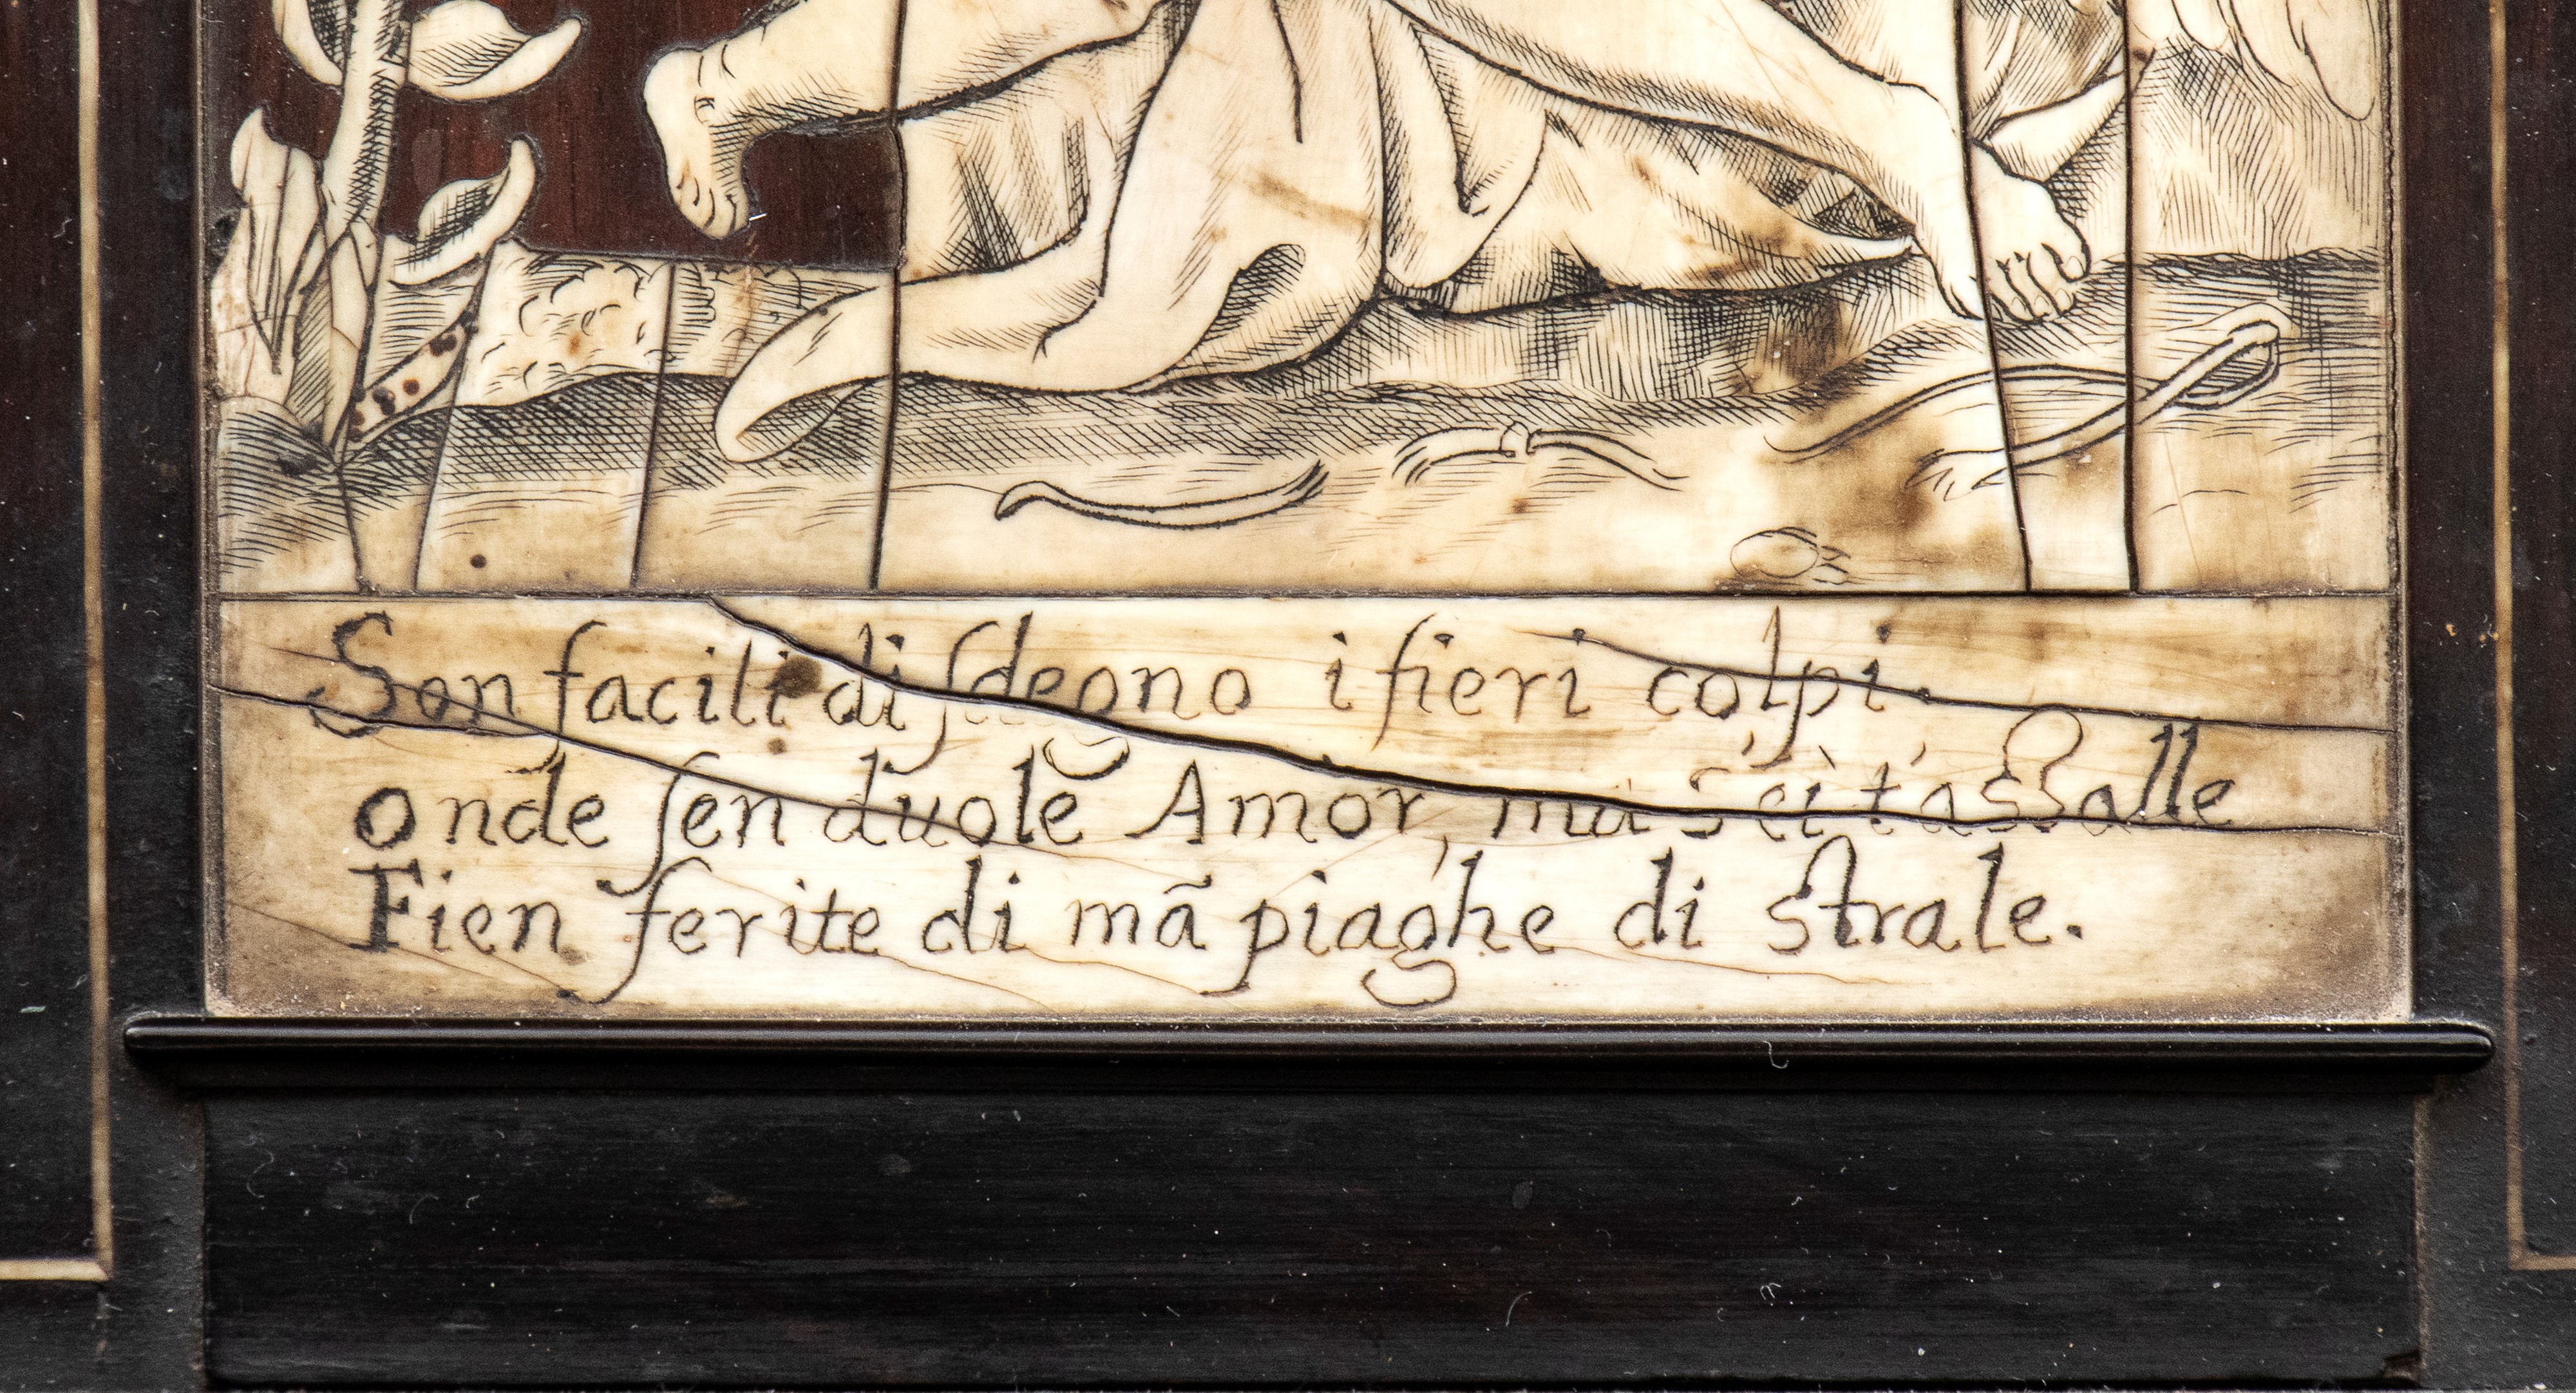 Son facili di ſdegno i fieri colpi.
onde ſen duole Amor, ma s'ei t'assalle
Fien ferite di mã piaghe di strale.